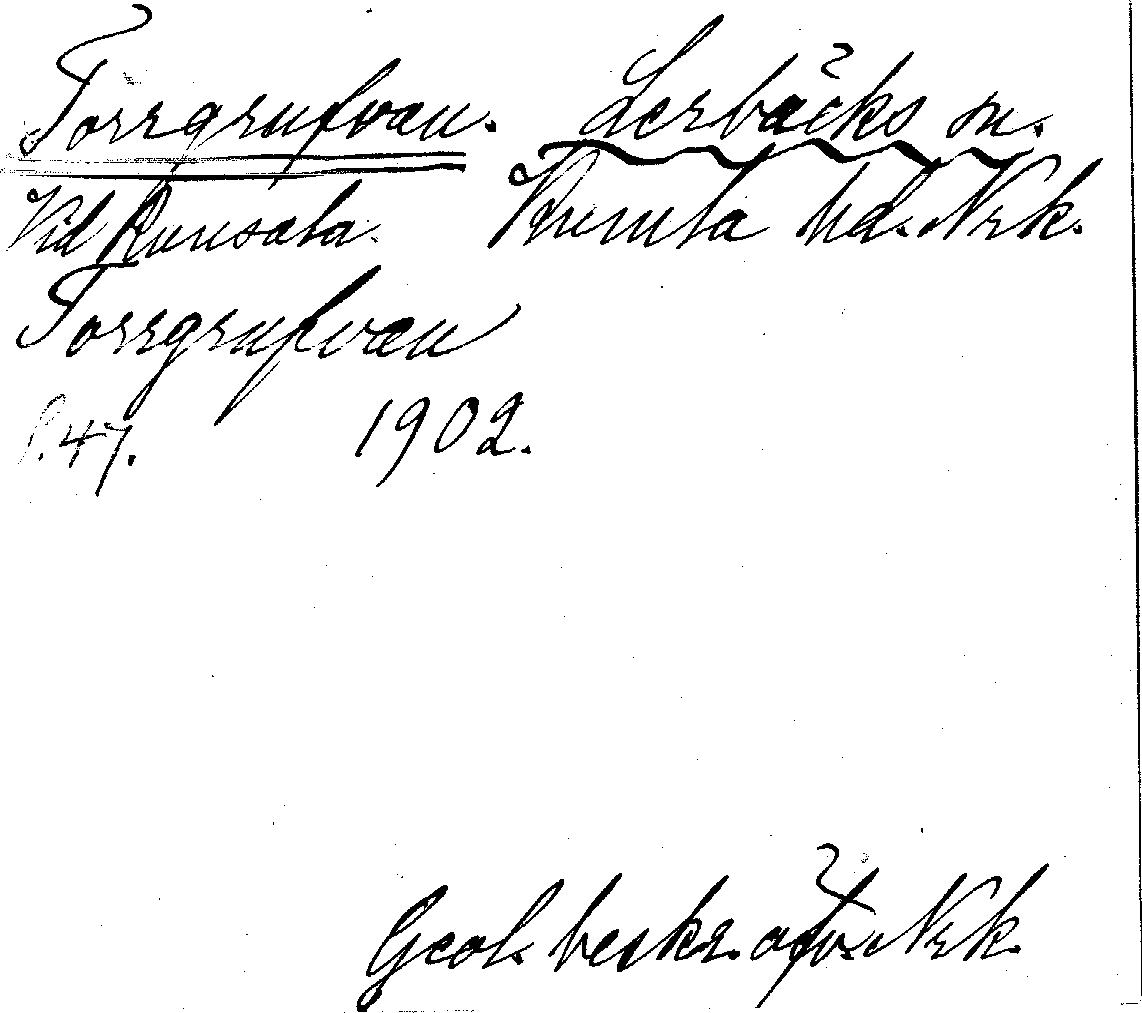 Torrgrufvan. Lerbäcks sn.
Vid Rönsala. Kumla hd. Nrk.
Torrgrufvan
s. 47. 1902.
Geol. beskr. öfv. Nrk.